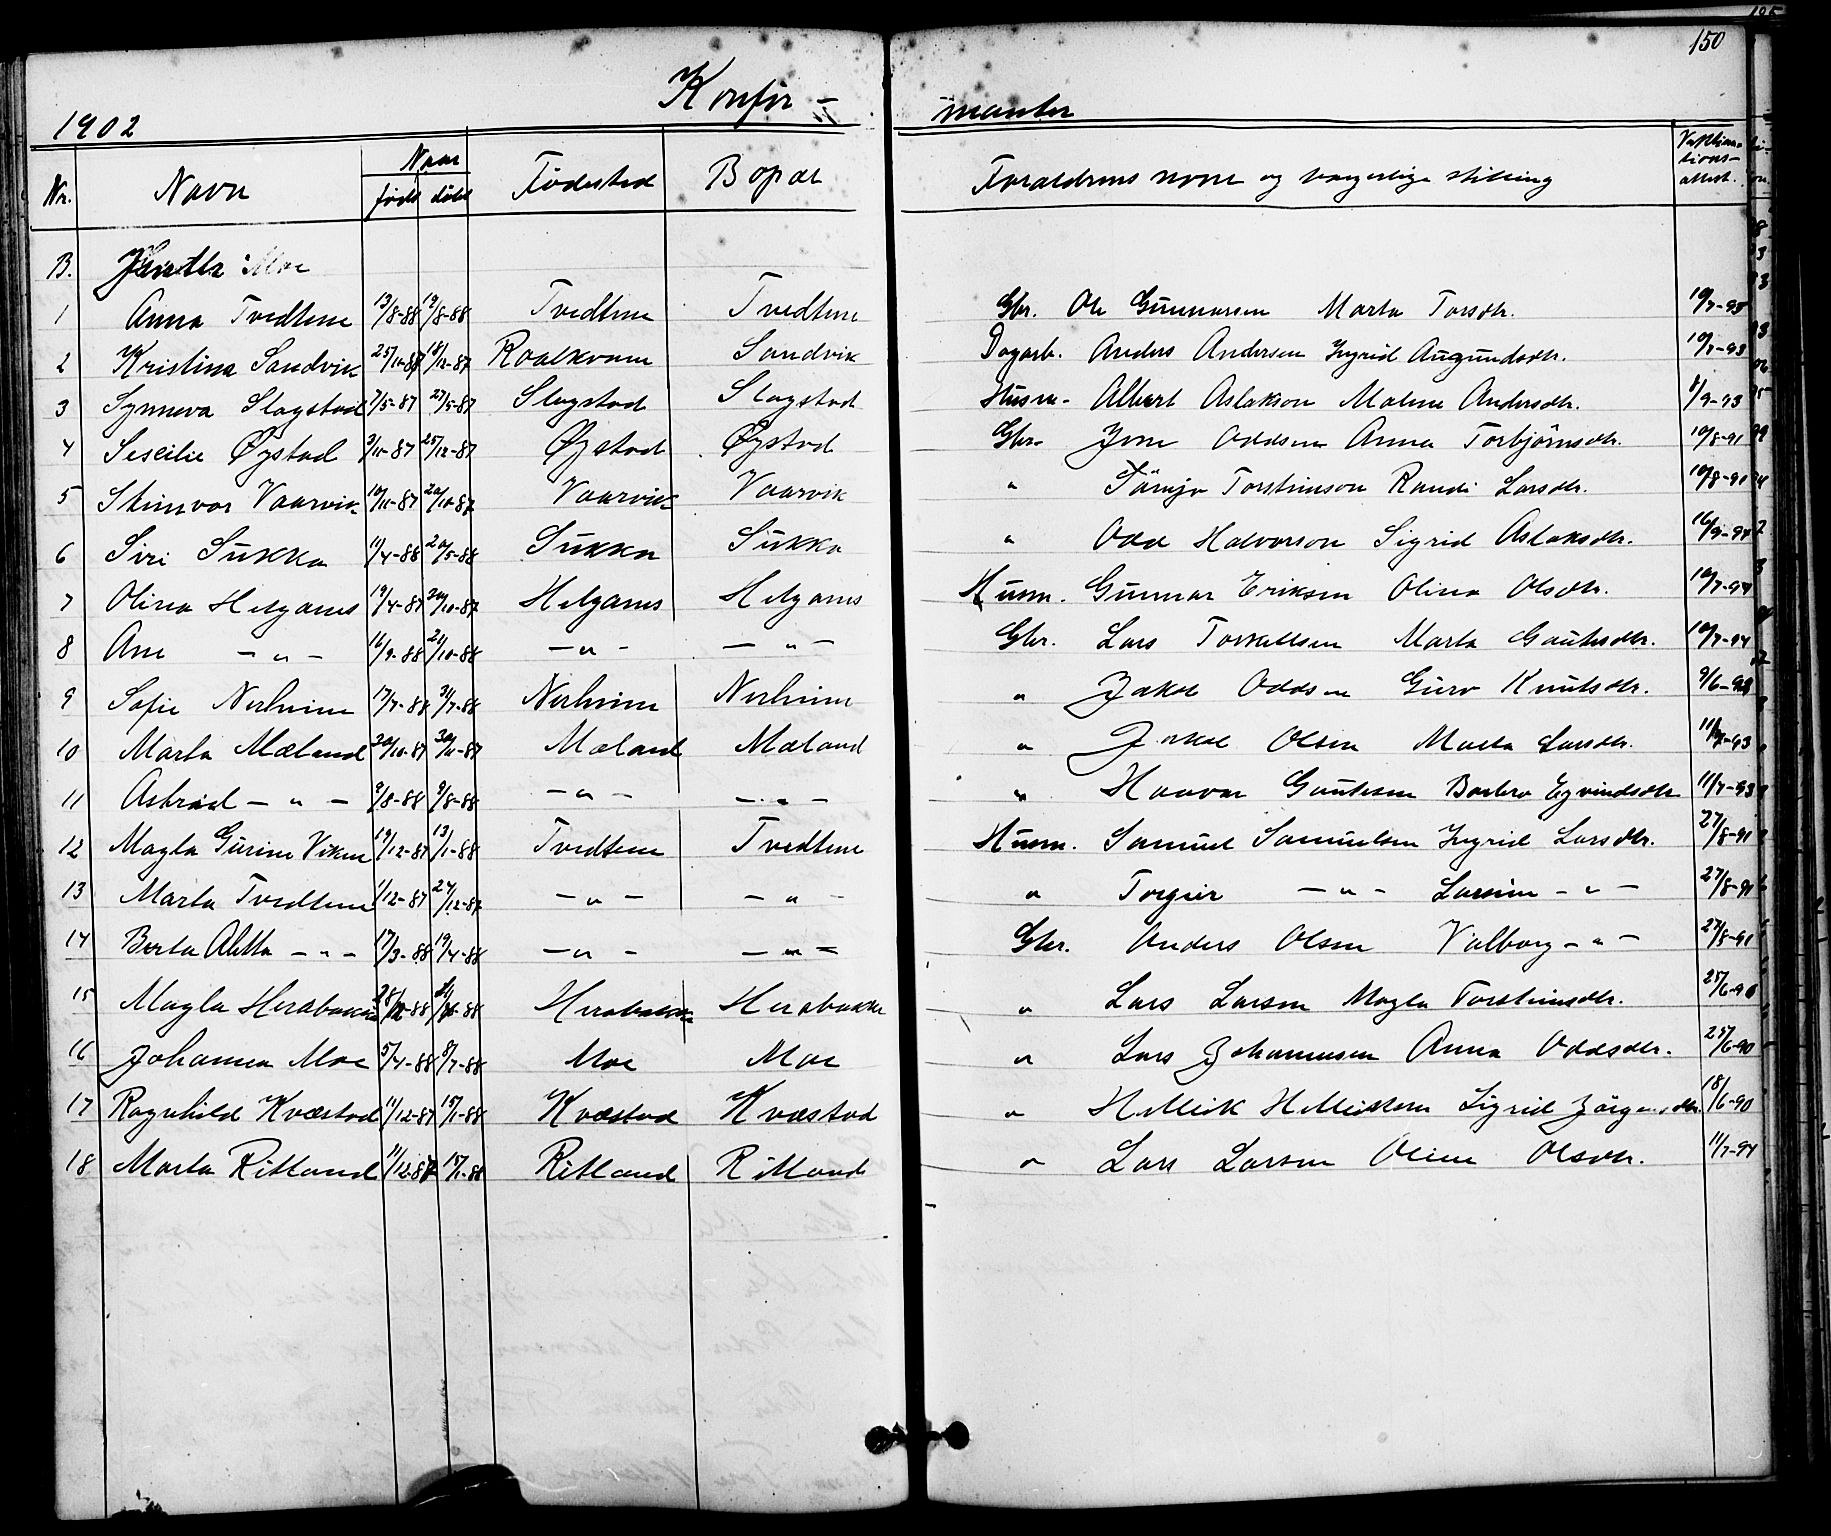 150
Konfir- manter
1902
Nr. Navn Naar født døbt Fødested Bopæl Forældrenes navne og borgerlige stilling Vaktina-tions-attest.
B. Jenter
1 Anna Tvedtene 13/8-88 19/8-88 Tvedtene Tvedtene Gbr. Ole Gunnarsen Marta Torsdtr. 10/7-93
2 Kristina Sandvik 25/10-87 18/12-87 Roalkvam Sandvik Dagarb. Anders Andersen Ingrid Augundsdtr. 10/7-93
3 Synneva Slagstad 7/5-87 27/5-87 Slagstad Slagstad Husm. Albert Aslakson Malene Andersdtr. 1/9-93
4 Seseilie Øystad 3/11-87 25/12-87 Øystad Øystad Gbr. Jone Oddsen Anna Torbjörnsdtr. 10/8-91
5 Steinvor Vaarvik 10/11-87 20/11-87 Vaarvik Vaarvik " Torsteinson Randi Larsdtr. 10/8-91
6 Siri Sukka 11/4-88 20/5-88 Sukka Sukka " Odd Halvorson Sigrid Aslaksdtr. 16/9-94
7 Olina Helganes 19/4-87 Helganes Helganes Husm. Gunnar Eriksen Olina Olsdtr. 10/7-94
8 Ane -"- 16/9-88 21/10-88 -"- -"- Gbr. Lars Torkellsen Marta Gautesdtr. 10/7-94
9 Sofie Nerheim 17/7-88 31/7-88 Nerheim Nerheim " Jakob Oddsen Guro Knutsdtr.
10 Marta Mæland 20/10-87 30/11-87 Mæland Mæland " Jakob Olsen Marta Larsdtr.
11 Astrid -"- 9/8-88 9/8-88 -"- -"- " Haavar Gautesen Barbro Eyvindsdtr. 11/7-93
12 Magla Gurine Viken 19/12-87 13/1-88 Tvedtene Tvedtene Husm. Samuel Samuelsen Ingrid Larsdtr. 27/8-91
13 Marta Tvedtene 1/12-87 27/12-87 -"- -"- " Torgier -"- Larsine -"- 27/8-91
14 Berta Aletta -"- 17/3-88 19/4-88 -"- -"- Gbr. Anders Olsen Valborg -"- 27/8-91
15 Magla Herabakka Herabakka Herabakke " Lars Larsen Magla Torsteinsdtr.
16 Johanna Moe 5/4-88 8/7-88 Moe Moe " Lars Johannesen Anna Oddsdtr. 25/6-90
17 Ragnhild Kvæstad 11/12-87 15/1-88 Kvæstad Kvæstad " Helleik Helleiksen Sigrid Jörgensdtr. 18/6-90
18 Marta Ritland 11/12-87 15/1-88 Ritland Ritland " Lars Larsen Oline Olsdtr. 11/7-94